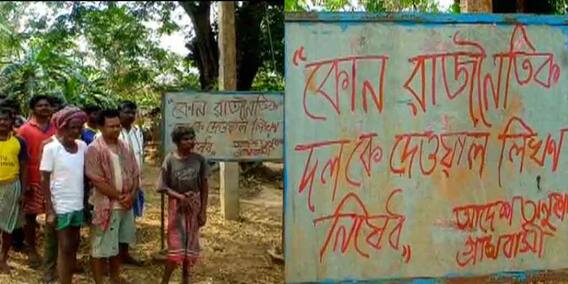 "কোন রাজনৈতিক
দলকে দেওয়াল লিখণ
নিষেধ„
আদেশ অনুসারে
গ্রামবাসী
"কোন রাজনৈতিক
দলকে দেওয়াল লিখণ
নিষেধ„